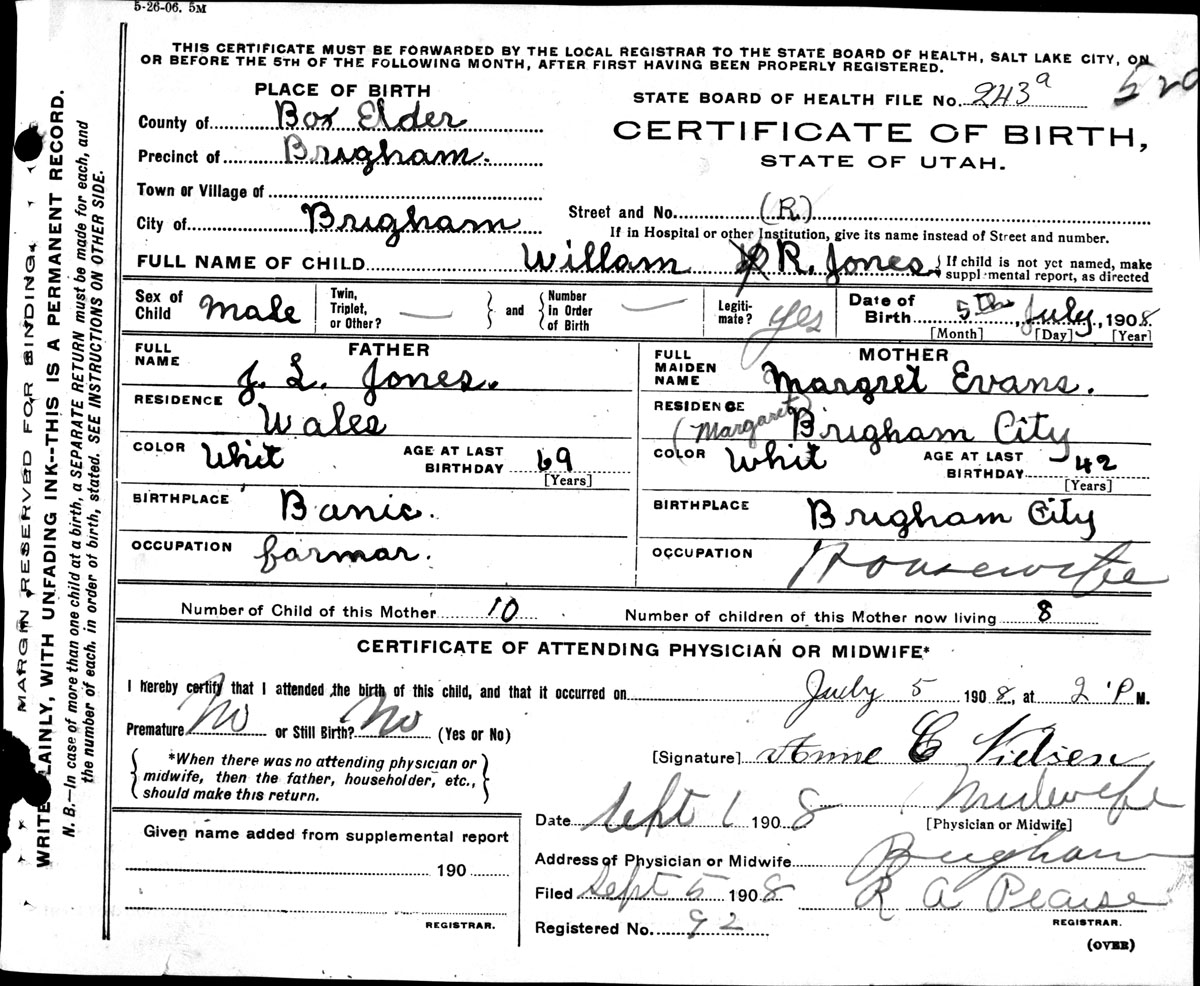 5-26-06. 5M
THIS CERTIFICATE MUST BE FORWARDED BY THE LOCAL REGISTRAR TO THE STATE BOARD OF HEALTH, SALT LAKE CITY, ON
OR BEFORE THE 5TH OF THE FOLLOWING MONTH, AFTER FIRST HAVING BEEN PROPERLY REGISTERED.
PLACE OF BIRTH
STATE BOARD OF HEALTH FILE No. 243 a
520
County of Box Elder
CERTIFICATE OF BIRTH,
Precinct of Brigham.
STATE OF UTAH.
Town or Village of
City of Brigham
Street and No. (R.)
If in Hospital or other Institution, give its name instead of Street and number.
FULL NAME OF CHILD Willam R. Jones
If child is not yet named, make
supplemental report, as directed
Sex of Child Male
Twin, Triplet, or Other? —
and
Number In Order of Birth —
Legiti-mate? yes
Date of Birth 5th, July, 1908
[Month] [Day] [Year]
FATHER
FULL NAME J. L. Jones.
RESIDENCE Wales
COLOR Whit
AGE AT LAST BIRTHDAY 69
[Years]
BIRTHPLACE Banic.
OCCUPATION farmar.
MOTHER
FULL MAIDEN NAME Margret Evans.
(Margaret)
RESIDENCE Brigham City
COLOR Whit
AGE AT LAST BIRTHDAY 42
[Years]
BIRTHPLACE Brigham City
OCCUPATION Housewife
Number of Child of this Mother 10
Number of children of this Mother now living 8
CERTIFICATE OF ATTENDING PHYSICIAN OR MIDWIFE*
I hereby certify that I attended the birth of this child, and that it occurred on July 5 1908, at 2 P M.
Premature No or Still Birth? No (Yes or No)
*When there was no attending physician or
midwife, then the father, householder, etc.,
should make this return.
[Signature] Anne C Nielsen
Midwife
[Physician or Midwife]
Date Sept 1 1908
Address of Physician or Midwife Brigham
Filed Sept 5 1908 R A Pearse
REGISTRAR.
Registered No. 92
(OVER)
Given name added from supplemental report
190
REGISTRAR.
MARGIN RESERVED FOR BINDING.
WRITE PLAINLY, WITH UNFADING INK--THIS IS A PERMANENT RECORD.
N. B.—In case of more than one child at a birth, a SEPARATE RETURN must be made for each, and
the number of each, in order of birth, stated. SEE INSTRUCTIONS ON OTHER SIDE.